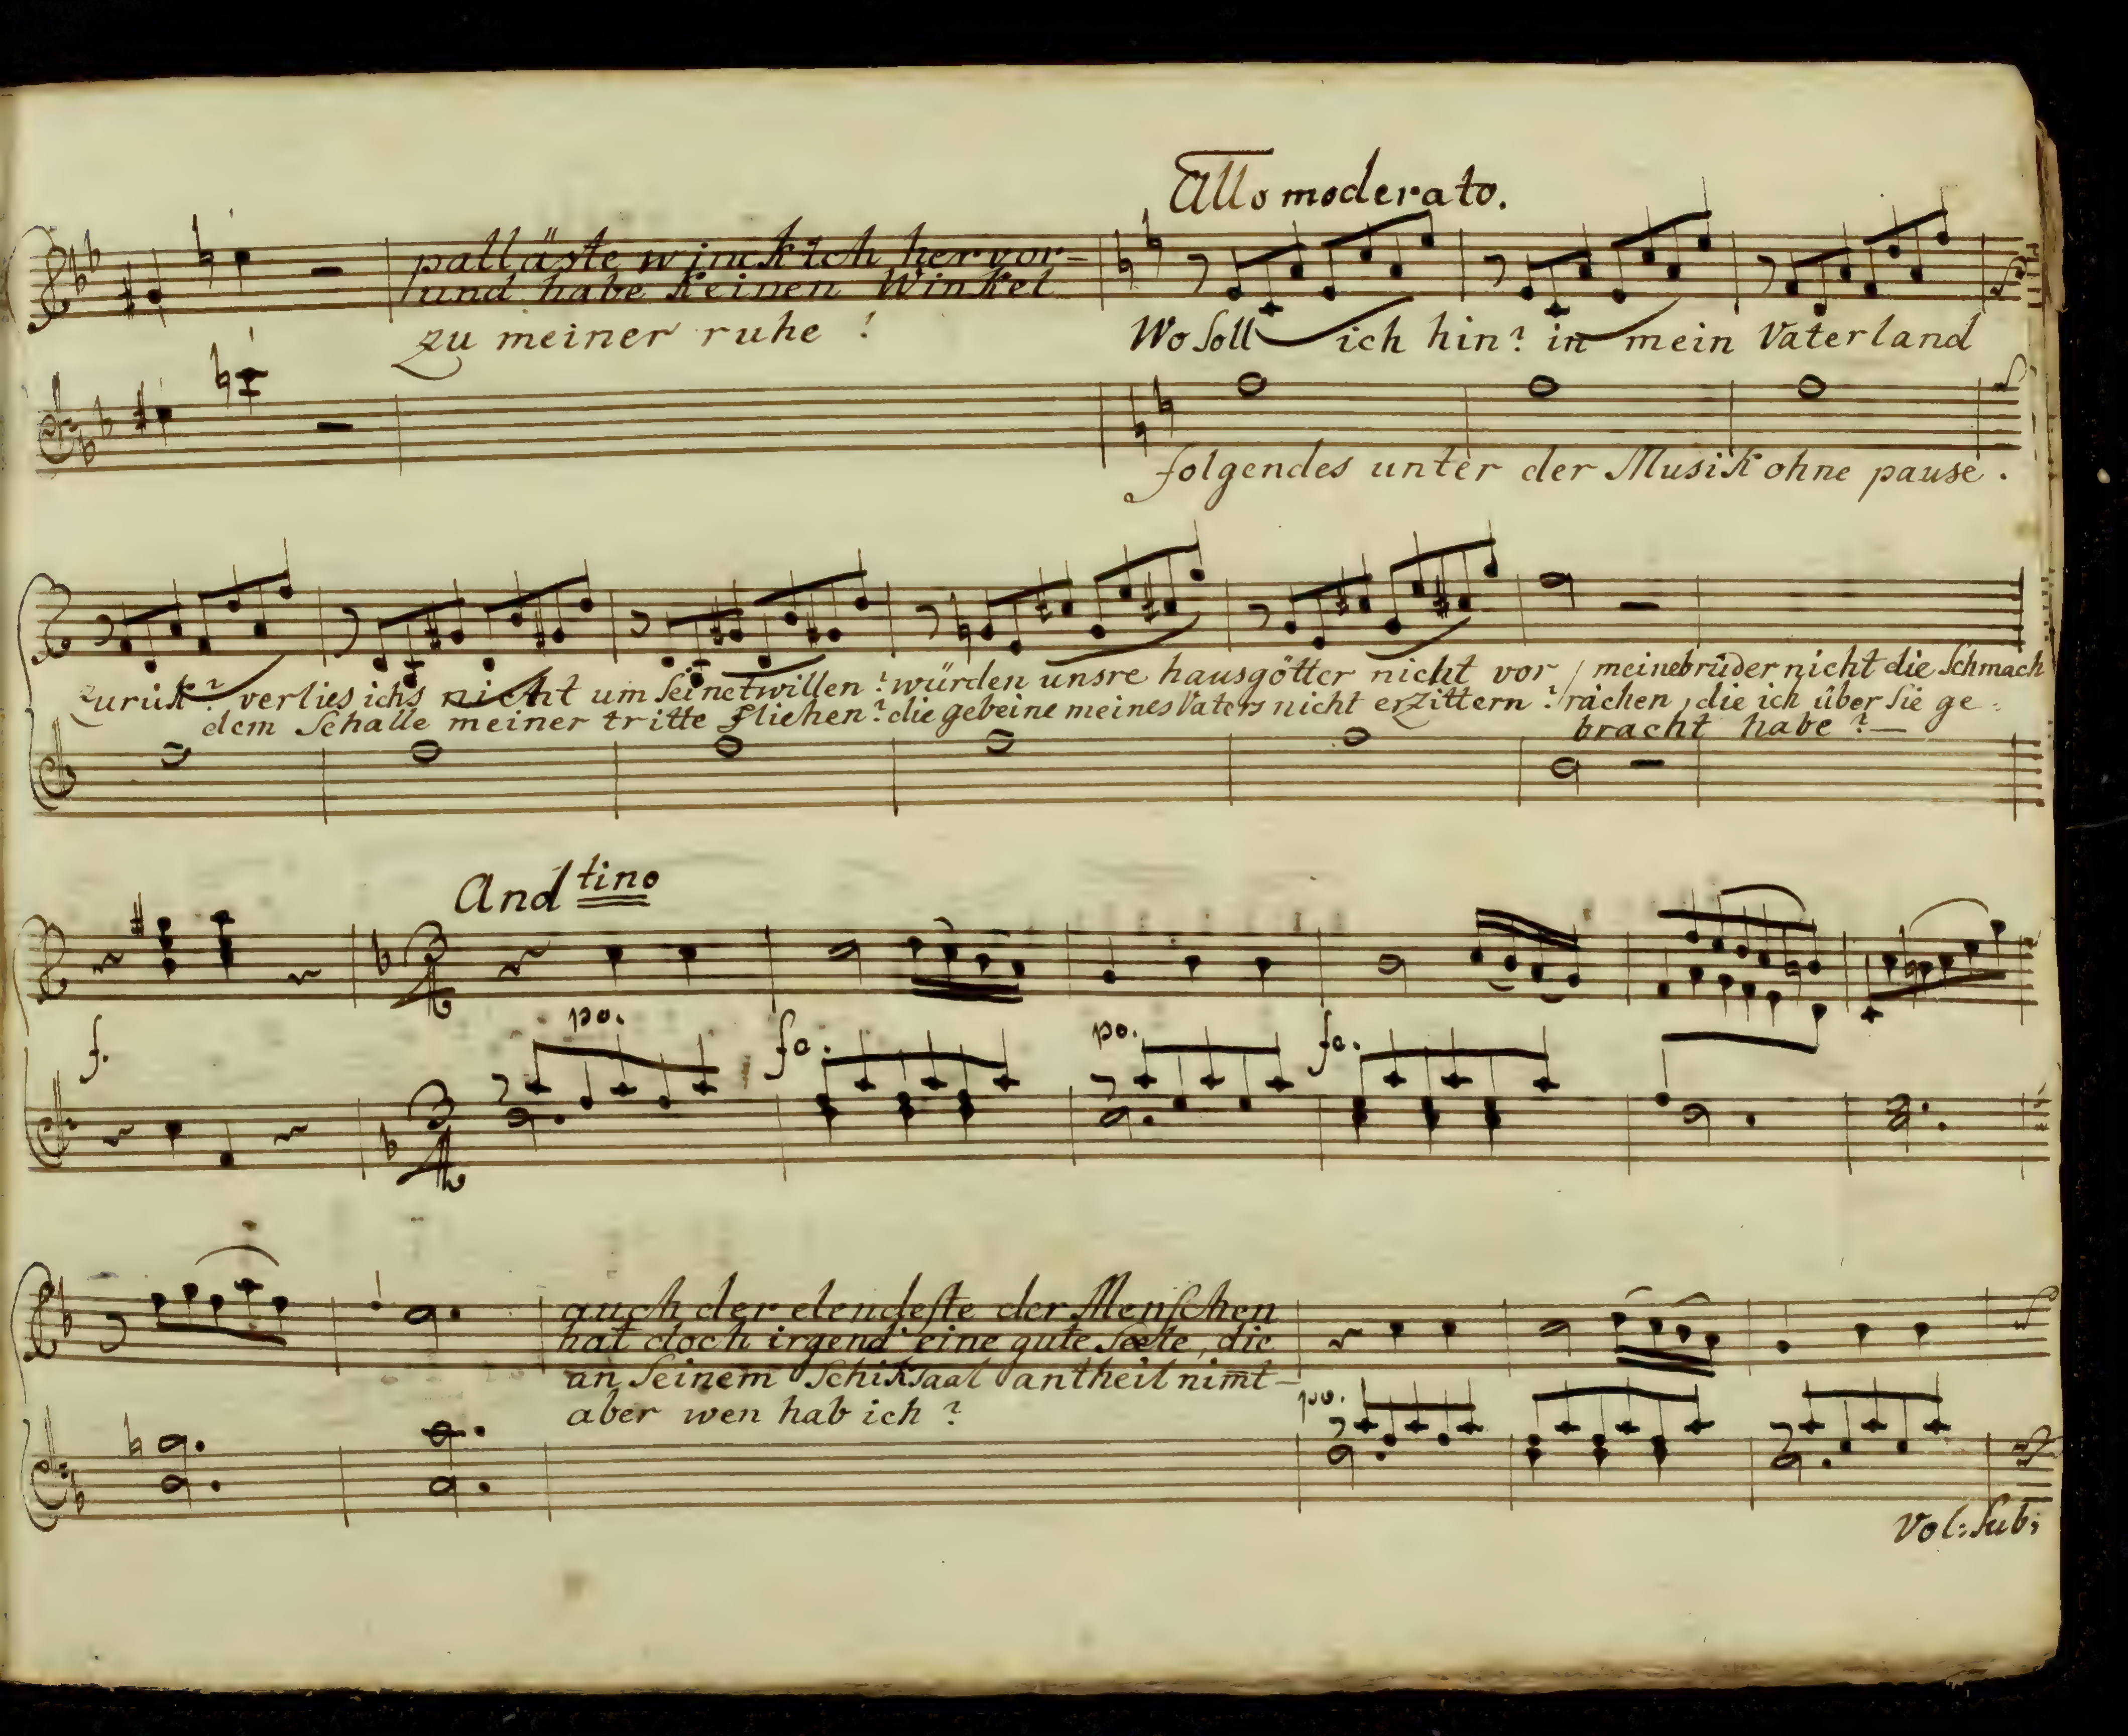 Allo moderato.
palläste winck ich hervor-
und habe keinen Winkel
zu meiner ruhe !
Wo soll ich hin? in mein Vaterland
folgendes unter der Musik ohne pause.
zurük? verlies ichs nicht um seinetwillen? würden unsre hausgötter nicht vor
dem schalle meiner tritte fliehen? die gebeine meines Vaters nicht erzittern?
meine brüder nicht die schmach
rächen, die ich über sie ge-
bracht habe?—
Andtino
f.
po.
fo.
po.
fo.
auch der elendeste der Menschen
hat doch irgend eine gute seele, die
an seinem schiksaal antheil nim̄t-
aber wen hab ich?
po.
Vol: sub: